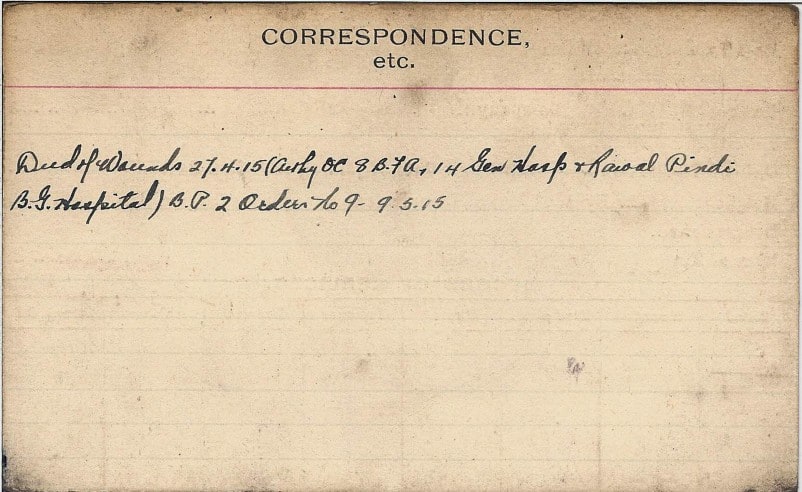 CORRESPONDENCE,
etc.
Died of Wounds 27.4.15 (Authy OC 8 B.F.A, 14 Gen Hosp & Rawal Pindi
B.G. Hospital) B.P. 2 Orders No 9 - 9.5.15